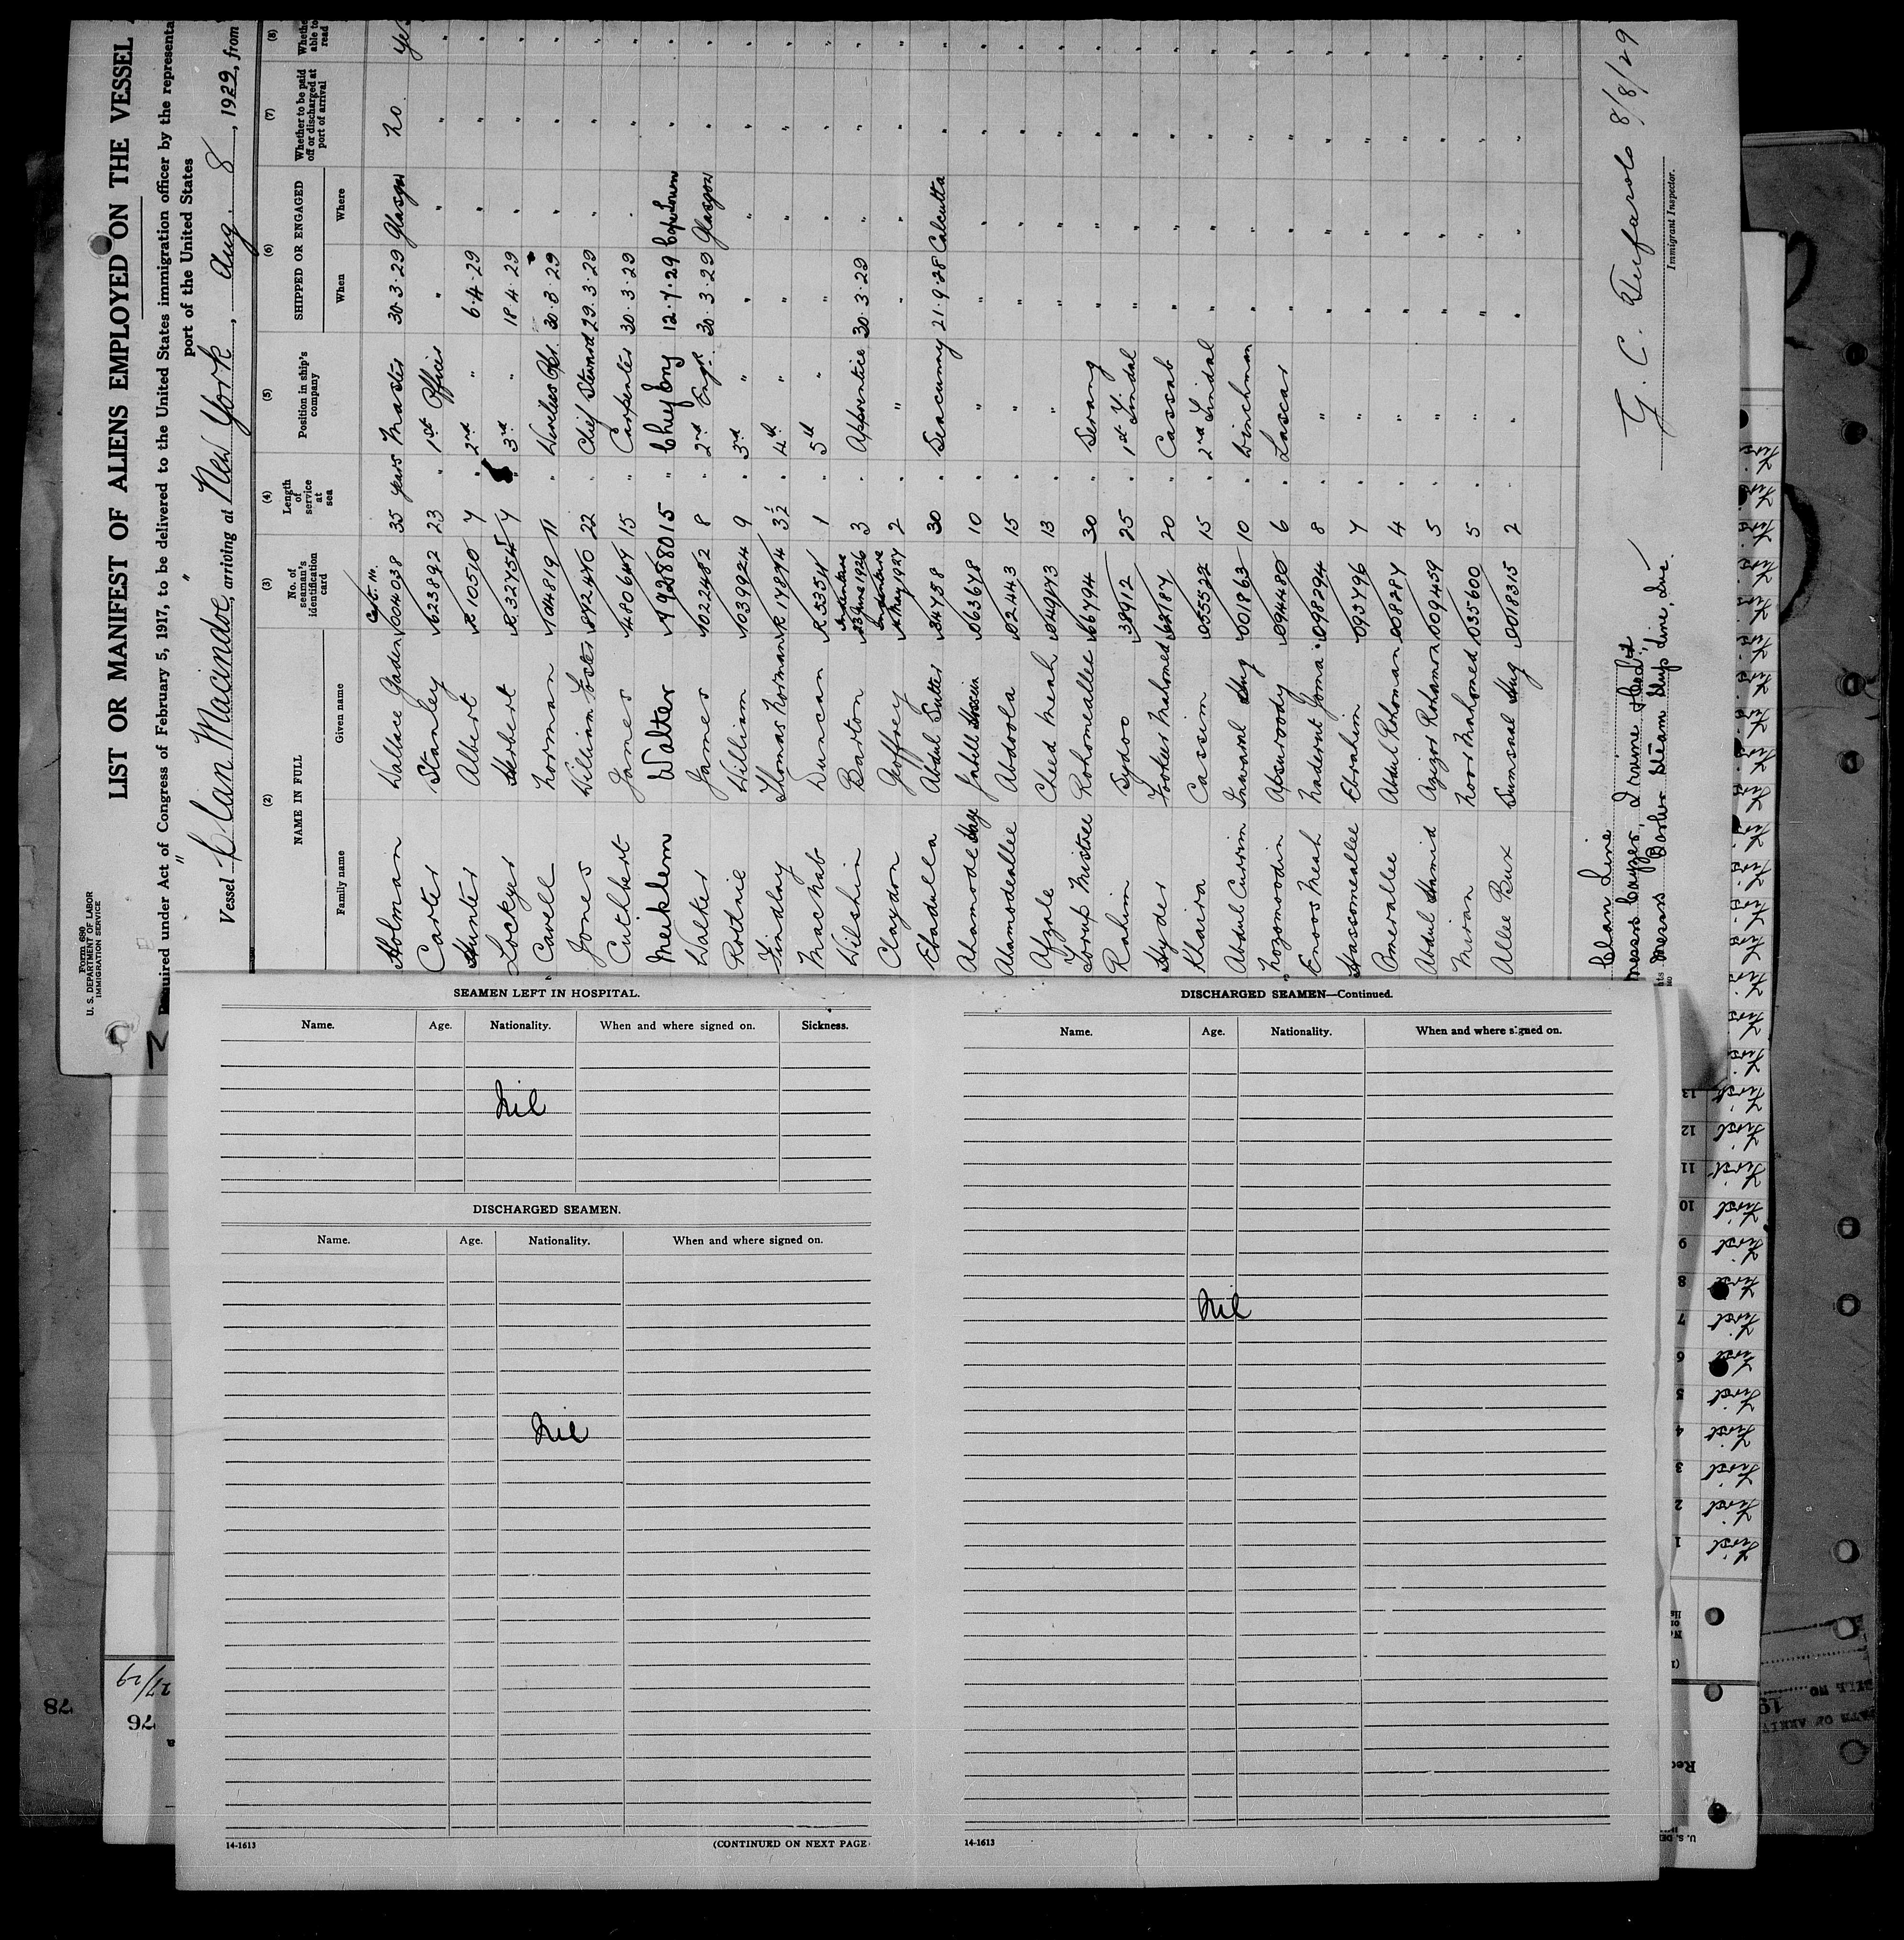 Form 680
U. S. DEPARTMENT OF LABOR
IMMIGRATION SERVICE
LIST OR MANIFEST OF ALIENS EMPLOYED ON THE VESSEL
Required under Act of Congress of February 5, 1917, to be delivered to the United States immigration officer by the representa
port of the United States
Vessel Clan Macindoe, arriving at New York, Aug. 8, 1929, from
(2) (3) (4) (5) (6) (7) (8)
NAME IN FULL No. of seaman's identification card Length of service at sea Position in ship's company SHIPPED OR ENGAGED Whether to be paid off or discharged at port of arrival Whethe able to read
Family name Given name When Where
Holman Wallace Gaden 1004038 35 years Master 30.3.29 Glasgow No Yes
Carter Stanley 623892 23 " 1st Officer " " " "
Hunter Albert R10510 7 " 2nd " 6.4.29 " " "
Lockyer Herbert R32754 4 " 3rd " 18.4.29 " " "
Cavell Norman 1044819 11 " Wireless Opr. 30.3.29 " " "
Jones William Foster 892470 22 " Chief Steward 29.3.29 " " "
Cuthbert James 480649 15 " Carpenter 30.3.29 " " "
Meiklem Walter 992880 15 " Chief Eng 12.7.29 Cape Town " "
Walker James 1022482 8 " 2nd Engr. 30.3.29 Glasgow " "
Rodnie William 1039924 9 " 3rd " " " " "
Findlay Thomas Norman R17874 3½ " 4th " " " " "
MacNab Duncan R53354 1 " 5th " " " " "
Wilshin Barton Indenture 23 June 1926 3 " Apprentice 30.3.29 " " "
Claydon Geoffrey Indenture 4 May 1927 2 " " " " " "
Ebadulla Abdul Sutter 34758 30 " Seacunny 21.9.28 Calcutta " "
Ahamode Hage Jabell Hossein 063678 10 " " " " " "
Ahamodeallee Abdoola 02443 15 " " " " " "
Afzale Cheed Meah 049173 13 " " " " " "
Sorup Mistree Rohomeallee 66794 30 " Serang " " " "
Rahim Sydoo 38912 25 " 1st Tindal " " " "
Hyder Fookeer Mahomed 62187 20 " Cassab " " " "
Khaira Cassim 055522 15 " 2nd Tindal " " " "
Abdul Currim Inavaral Hug 001863 10 " Winchman " " " "
Nozomoodin Apsuroody 094480 6 " Lascar " " " "
Enoos Meah Naderut Joma 098294 8 " " " " " "
Hassomeallee Ebrahim 093796 7 " " " " " "
Omerallee Abdul Rohoman 008287 4 " " " " " "
Abdul Hamid Azizor Rohamon 009459 5 " " " " " "
Miran Noor Mahomed 035600 5 " " " " " "
Allee Bux Sumsaal Hug 0018315 2 " " " " " "
Clan Line
Messrs Cayzer, Irvine & Co. Ltd
Messrs Barber Steam Ship Line, Inc.
8/8/29
Immigrant Inspector.
SEAMEN LEFT IN HOSPITAL.
Name. Age. Nationality. When and where signed on. Sickness.
Nil
DISCHARGED SEAMEN.
Name. Age. Nationality. When and where signed on.
Nil
14-1613 (CONTINUED ON NEXT PAGE
DISCHARGED SEAMEN—Continued.
Name. Age. Nationality. When and where signed on.
Nil
14-1613
13
12
11
10
9
8
7
6
5
4
3
2
1
78
76